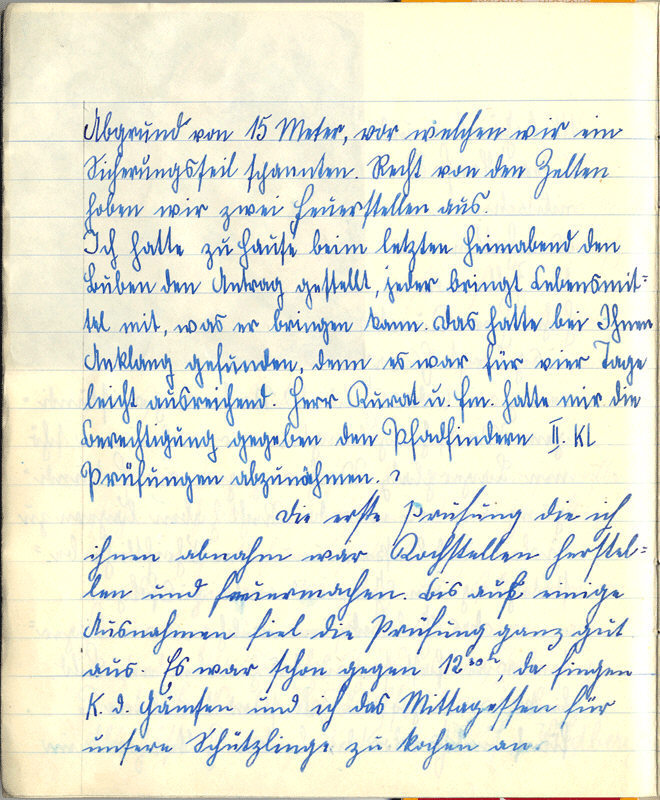 Abgrund von 15 Meter, vor welchen wir ein
Sicherungsseil spannten. Recht von den Zelten
hoben wir zwei Feuerstellen aus.
Ich hatte zu Hause beim letzten Heimabend den
Buben den Antrag gestellt, jeder bringt Lebensmit=
tel mit, was er bringen kann. Das hatte bei Ihnen
Anklang gefunden, denn es war für vier Tage
leicht ausreichend. Herr Kurat u. Fm. hatte mir die
Berechtigung gegeben den Pfadfindern II. Kl
Prüfungen abzunähmen.
Die erste Prüfung die ich
ihnen abnahm war Kochstellen herstel=
len und feuermachen. Bis auf einige
Ausnahmen fiel die Prüfung ganz gut
aus. Es war schon gegen 12³⁰ʰ, da fingen
K. d. Gämsen und ich das Mittagessen für
unsere Schützlinge zu kochen an.